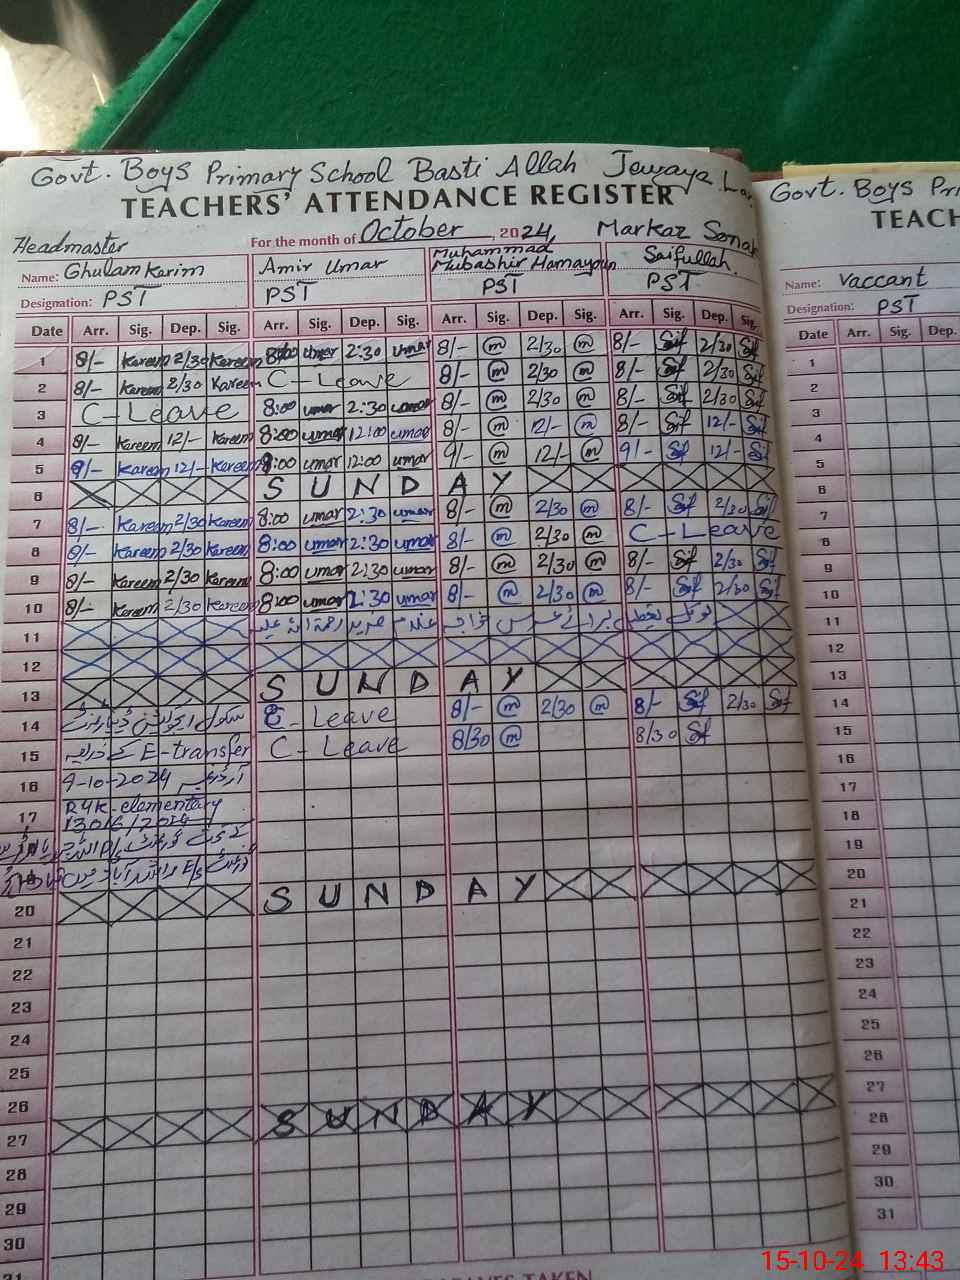 Govt. Boys Primary School Basti Allah Jewaya
TEACHERS' ATTENDANCE REGISTER
Headmaster For the month of October, 2024, Markaz
Name: Ghulam Karim Amir Umar Muhammad Mubashir Hamayoun Saifullah.
Designation: PST PST PST PST
Date Arr. Sig. Dep. Sig. Arr. Sig. Dep. Sig. Arr. Sig. Dep. Sig. Arr. Sig. Dep. Sig.
1 8/- Kareem 2/30 Kareem 8:00 umar 2:30 umar 8/- m 2/30 m 8/- Saif 2/30 Saif
2 8/- Kareem 2/30 Kareem C-Leave 8/- m 2/30 m 8/- Saif 2/30 Saif
3 C-Leave 8:00 umar 2:30 umar 8/- m 2/30 m 8/- Saif 2/30 Saif
4 8/- Kareem 12/- Kareem 8:00 umar 12:00 umar 8/- m 12/- m 8/- Saif 12/- Saif
5 8/- Kareem 12/- Kareem 8:00 umar 12:00 umar 9/- m 12/- m 9/- Saif 12/- Saif
6 SUNDAY
7 8/- Kareem 2/30 Kareem 8:00 umar 2:30 umar 8/- m 2/30 m 8/- Saif 2/30 Saif
8 8/- Kareem 2/30 Kareem 8:00 umar 2:30 umar 8/- m 2/30 m C-Leave
9 8/- Kareem 2/30 Kareem 8:00 umar 2:30 umar 8/- m 2/30 m 8/- Saif 2/30 Saif
10 8/- Kareem 2/30 Kareem 8:00 umar 2:30 umar 8/- m 2/30 m 8/- Saif 2/30 Saif
11
12
13 SUNDAY
14 C-Leave 8/- m 2/30 m 8/- Saif 2/30 Saif
15 کے ذریعہ E-transfer C-Leave 8/30 m 8/30 Saif
16 9-10-2024
17 RYK-elementary
13016/2024
20 SUNDAY
21
22
23
24
25
26
27 SUNDAY
28
29
30
31
Govt. Boys Pri
TEACH
Name: Vaccant
Designation: PST
Date Arr. Sig. Dep.
1
2
3
4
5
6
7
8
9
10
11
12
13
14
15
16
17
18
19
20
21
22
23
24
25
26
27
28
29
30
31
LEAVES TAKEN
15-10-24 13:43